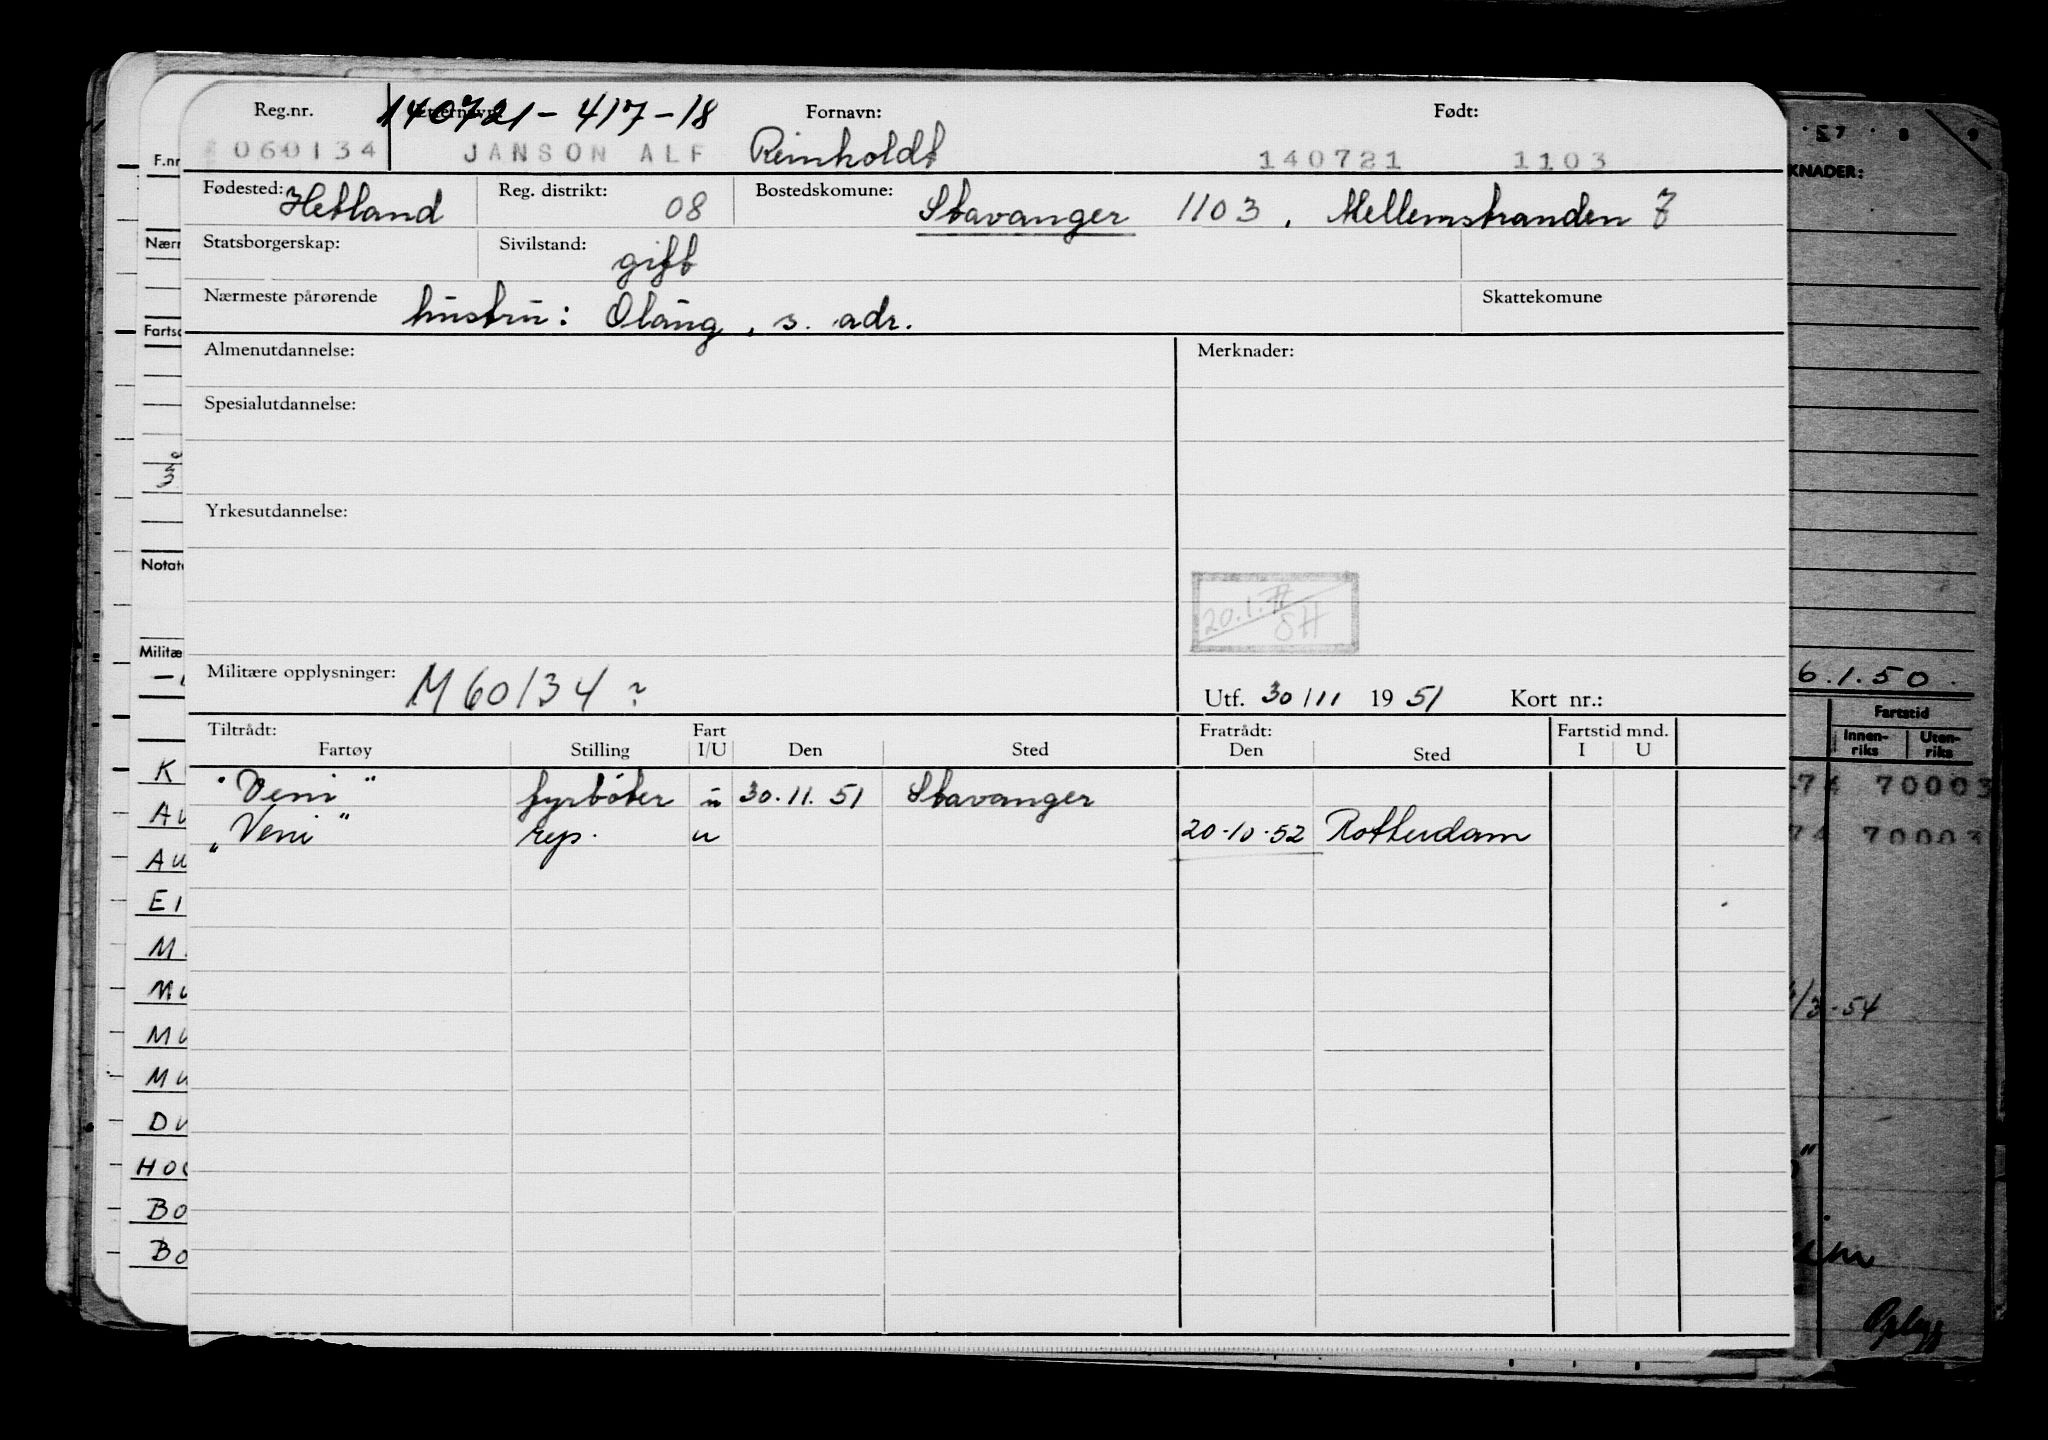 140721-417-18
Reg.nr. Etternavn: Fornavn: Født:
060134 JANSON ALF Reinholdt 140721 1103
Fødested: Hetland Reg. distrikt: 08 Bostedskomune: Stavanger 1103, Mellemstranden 7
Statsborgerskap: Sivilstand: gift
Nærmeste pårørende hustru: Olaug, s. adr. Skattekomune
Almenutdannelse: Merknader:
Spesialutdannelse:
Yrkesutdannelse:
20.1.71
Militære opplysninger: M 60134 ?
Utf. 30/11 1951 Kort nr.:
Tiltrådt: Fart Fratrådt: Fartstid mnd.
Fartøy Stilling I/U Den Sted Den Sted I U
"Veni" fyrbøter u 30.11.51 Stavanger
"Veni" rep. u 20-10-52 Rotterdam
F.nr
Nærr
Fartsc
3
Notate
Militæ
K
Au
Au
EI
M
Mu
Mu
Mu
Du
Ho
Bo
Bo
57 8 9
KNADER:
6.1.50.
Fartstid
Innen-riks Uten-riks
74 70003
74 70003
/3-54